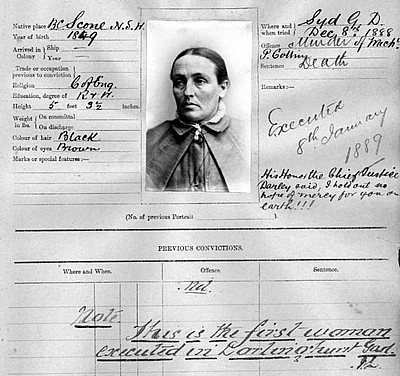 Native place B.C. Scone N.S.W.
Year of birth 1849
Arrived in Colony Ship
Year
Trade or occupation previous to conviction
Religion C of Eng.
Education, degree of R & W.
Height 5 feet 3½ inches.
Weight in lbs. On committal
On discharge
Colour of hair Black
Colour of eyes Brown
Marks or special features:—
Where and when tried Syd G. D.
Dec 8th, 1888
Offence Murder of Mich.
P. Collins
Sentence Death
Remarks:—
Executed
8th January
1889
His Honor the Chief Justice
Darley said, I hold out no
hope of mercy for you on
earth!!!
(No. of previous Portrait )
PREVIOUS CONVICTIONS.
Where and When. Offence. Sentence.
Nil.
Note
This is the first woman
executed in Darlinghurst Gaol.